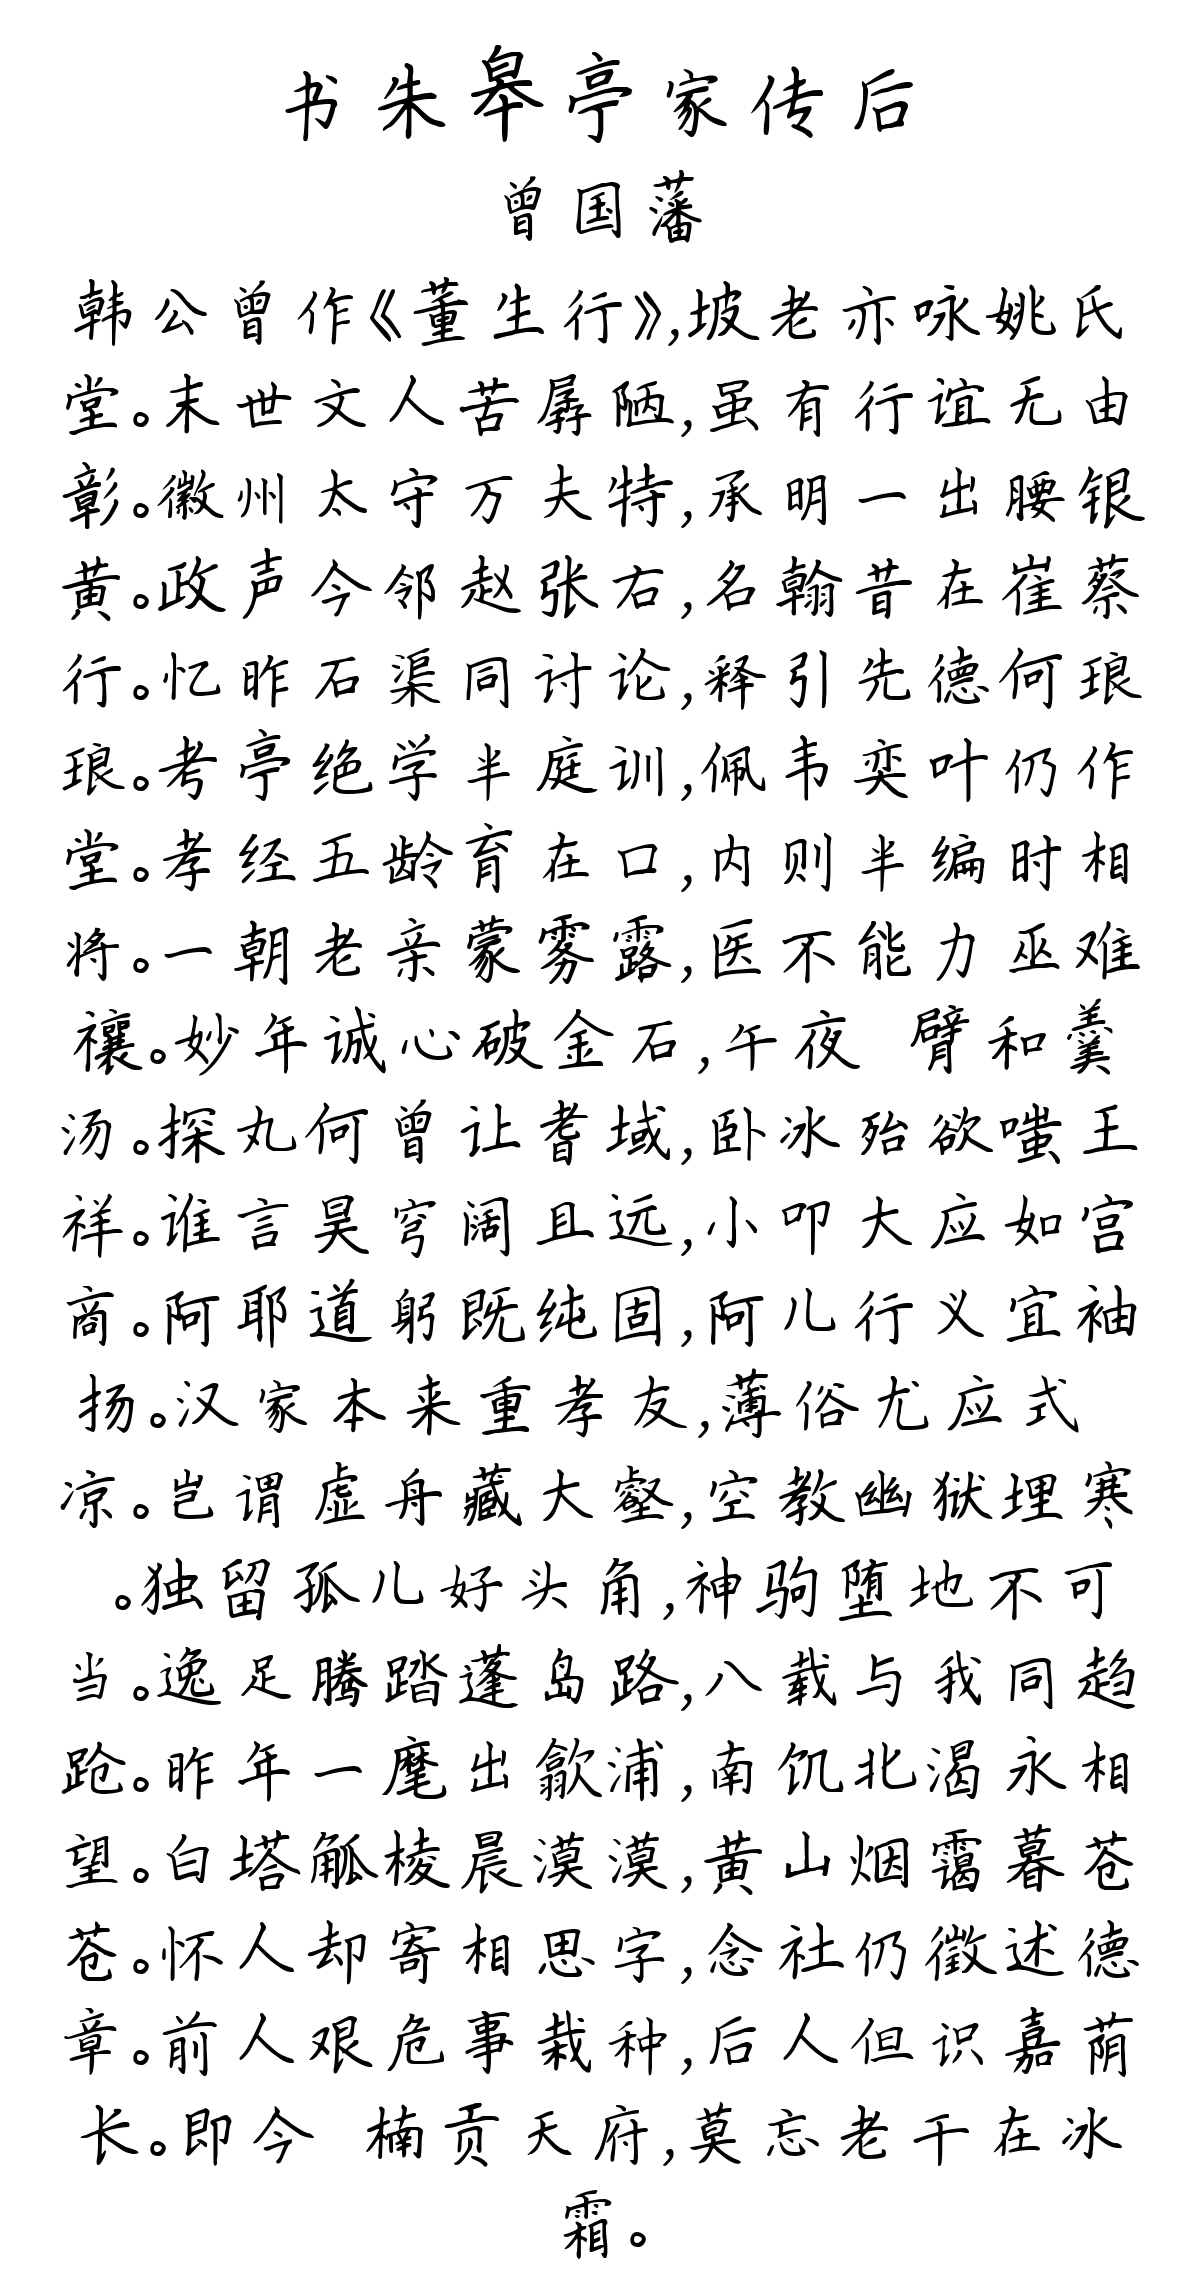 书朱皋亭家传后
曾国藩
韩公曾作《董生行》,坡老亦咏姚氏
堂。末世文人苦孱陋,虽有行谊无由
彰。徽州太守万夫特,承明一出腰银
黄。政声今邻赵张右,名翰昔在崔蔡
行。忆昨石渠同讨论,释引先德何琅
琅。考亭绝学半庭训,佩韦奕叶仍作
堂。孝经五龄育在口,内则半编时相
将。一朝老亲蒙雾露,医不能力巫难
禳。妙年诚心破金石,午夜 臂和羹
汤。探丸何曾让耆域,卧冰殆欲嗤王
祥。谁言昊穹阔且远,小叩大应如宫
商。阿耶道躬既纯固,阿儿行义宜袖
扬。汉家本来重孝友,薄俗尤应式
凉。岂谓虚舟藏大壑,空教幽狱埋寒
。独留孤儿好头角,神驹堕地不可
当。逸足腾踏蓬岛路,八载与我同趋
跄。昨年一麾出歙浦,南饥北渴永相
望。白塔觚棱晨漠漠,黄山烟霭暮苍
苍。怀人却寄相思字,念社仍徵述德
章。前人艰危事栽种,后人但识嘉荫
长。即今 楠贡天府,莫忘老干在冰
霜。